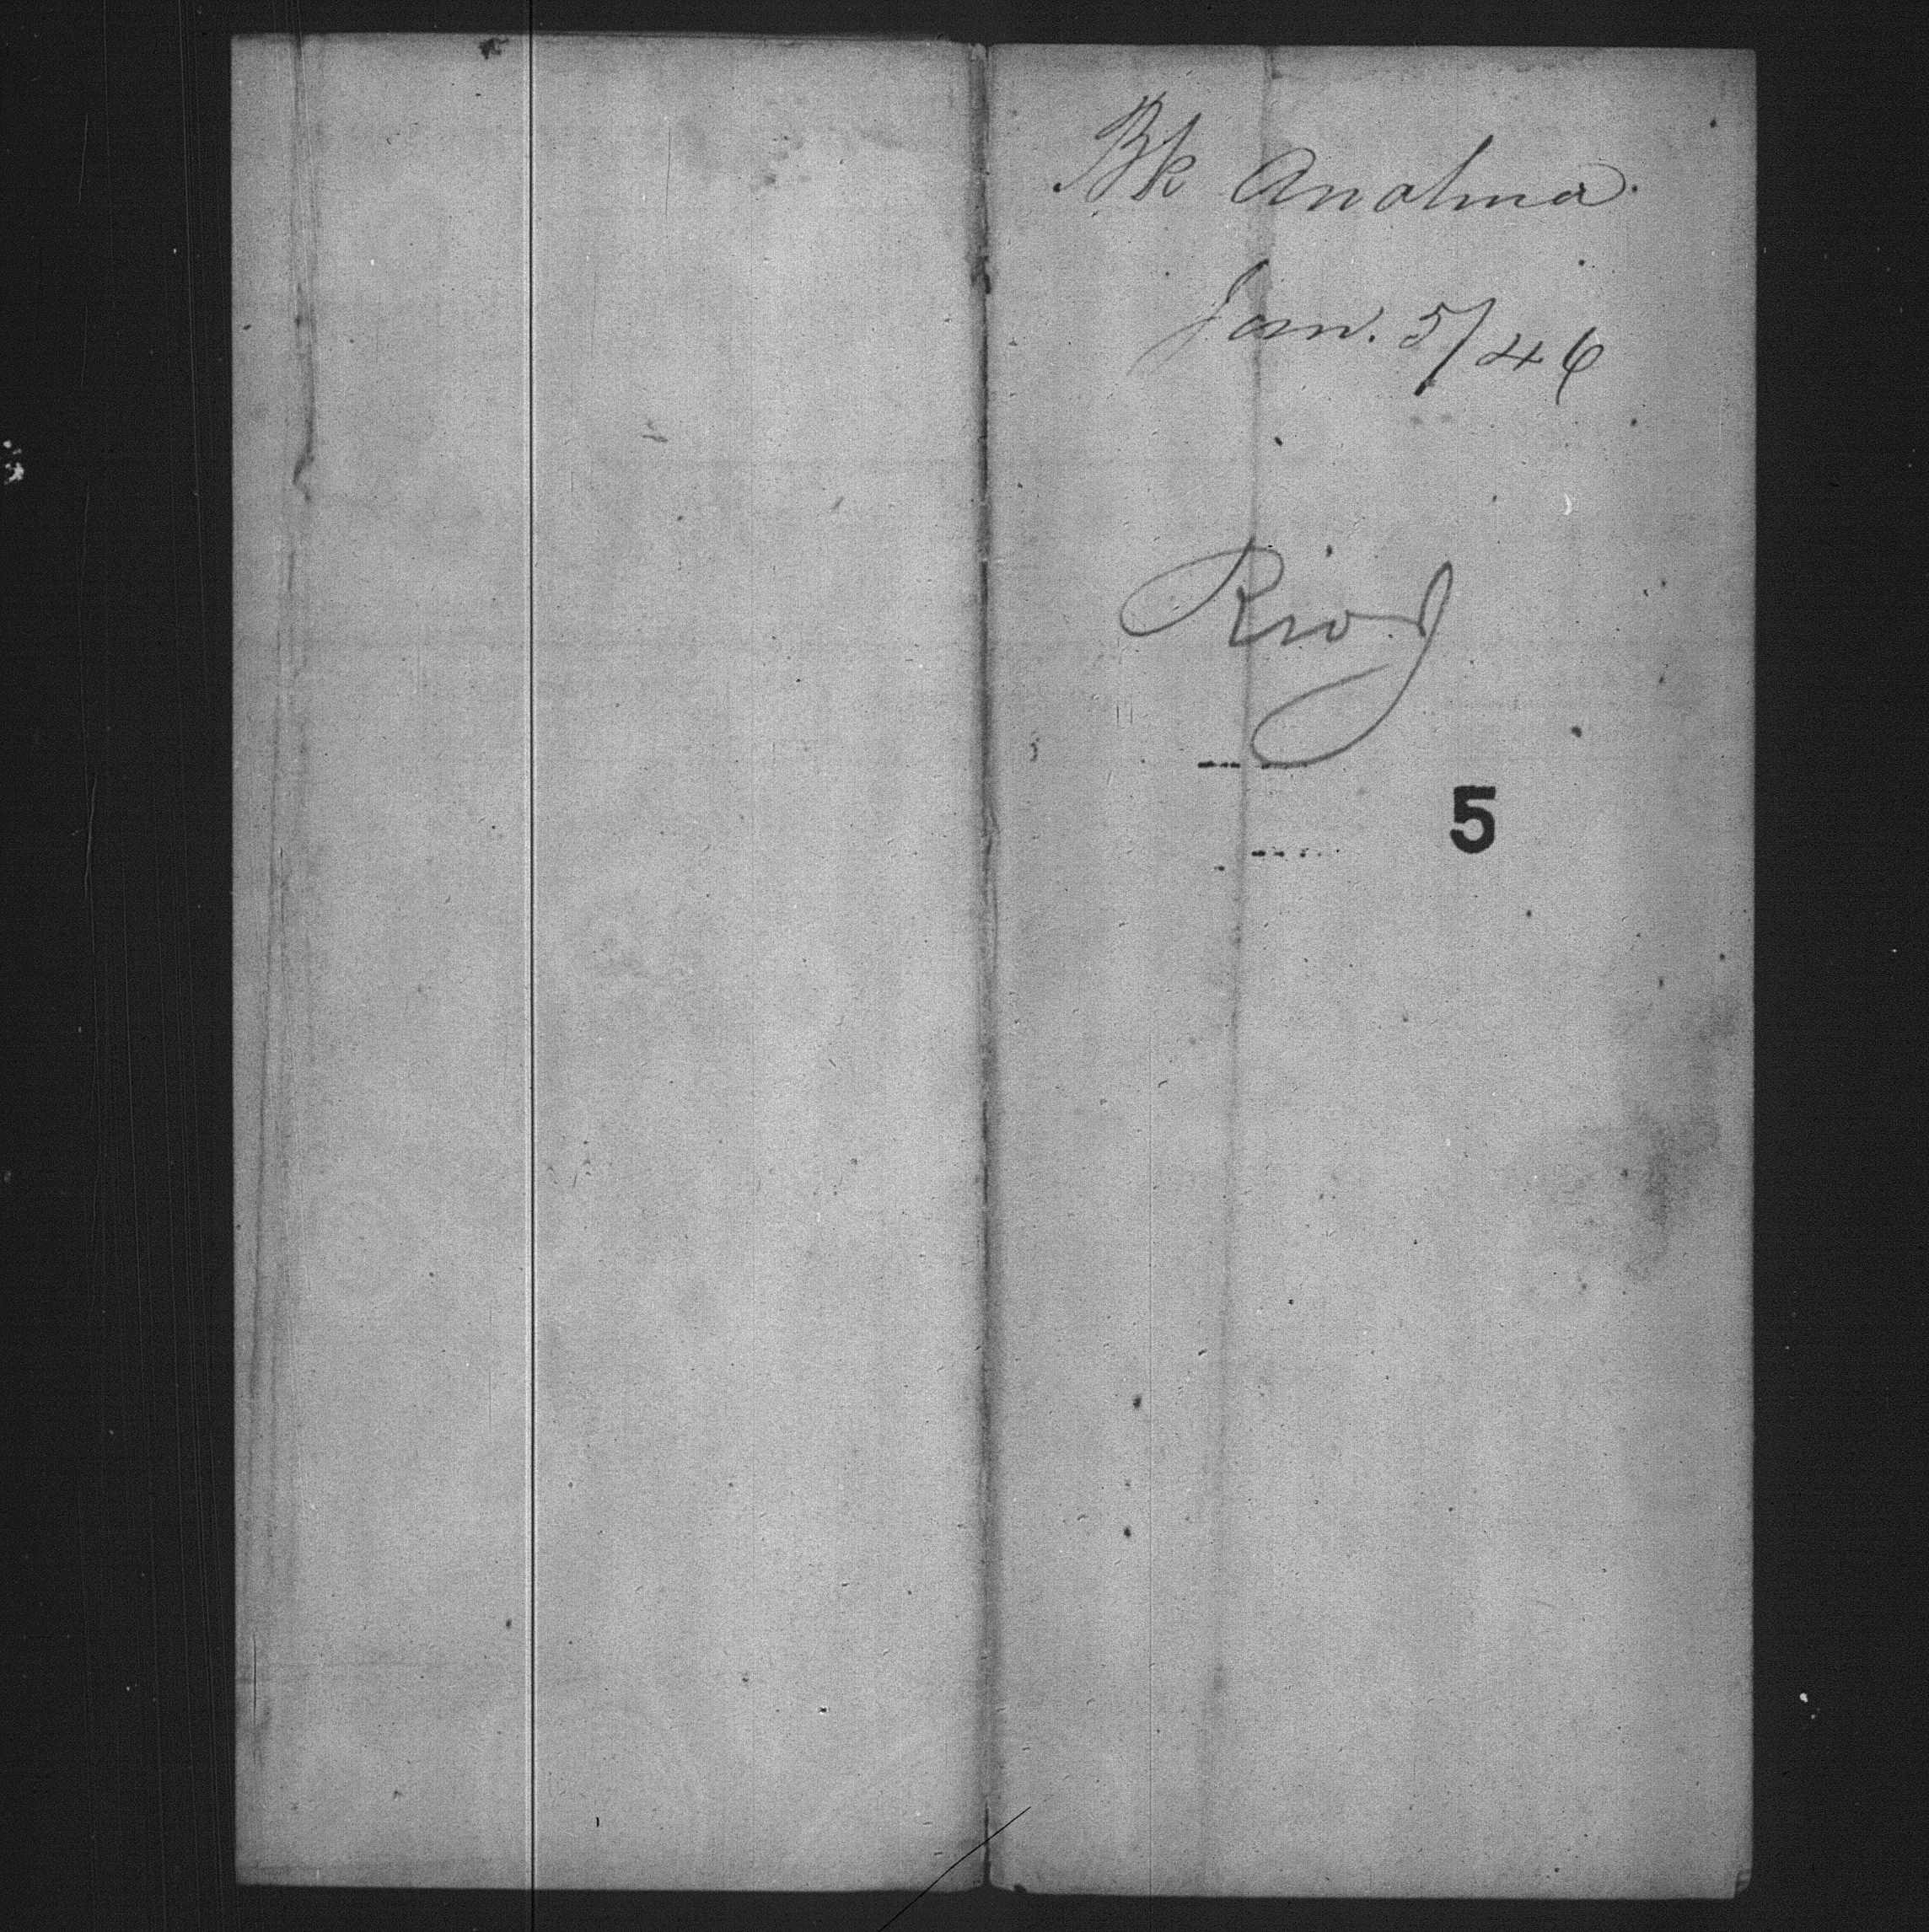 Bk Anatina.
Jan. 5/46
Rio J
5